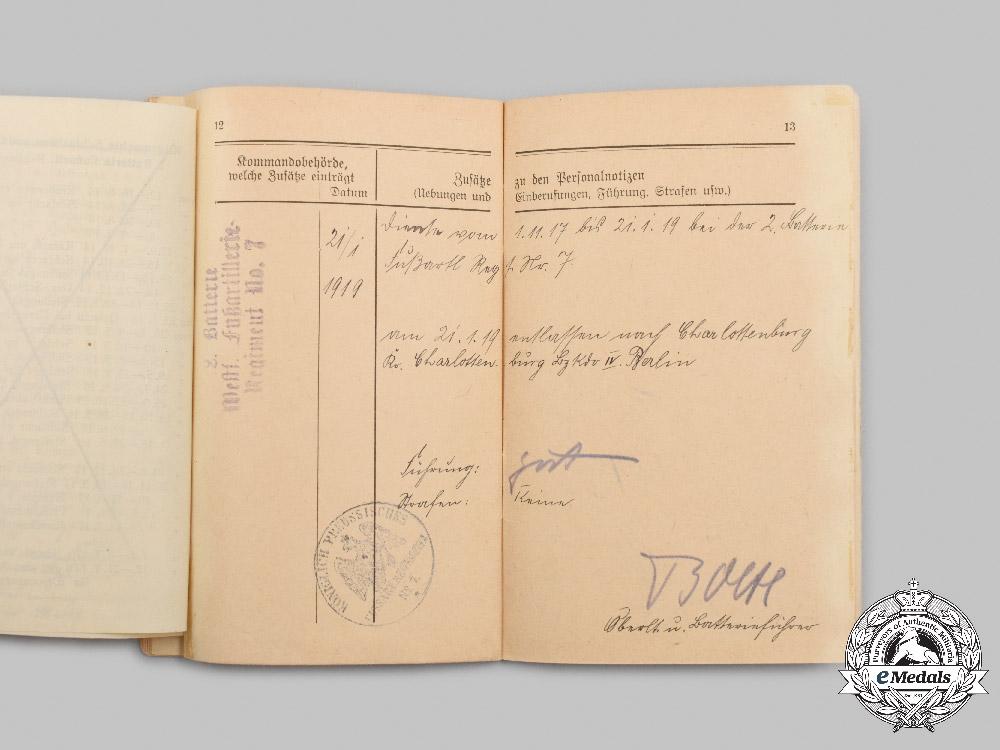 12
13
Kommandobehörde,
welche Zusätze einträgt
Datum
Zusätze
(Uebungen und
zu den Personalnotizen
Einberufungen, Führung, Strafen usw.)
2. Batterie
Westf. Fußartillerie-
Regiment No. 7
21/1
1919
Diente vom 1.11.17 bis 21.1.19 bei der 2. Batterie
Fußartl Regt. Nr. 7
am 21.1.19 entlassen nach Charlottenburg
Kr. Charlottenburg Bzkdo IV. Berlin
Führung: gut
Strafen: Keine
KÖNIGLICH PREUSSISCHES
No 7.
Oberlt. u. Batterieführer
Purveyors of Authentic Militaria
eMedals